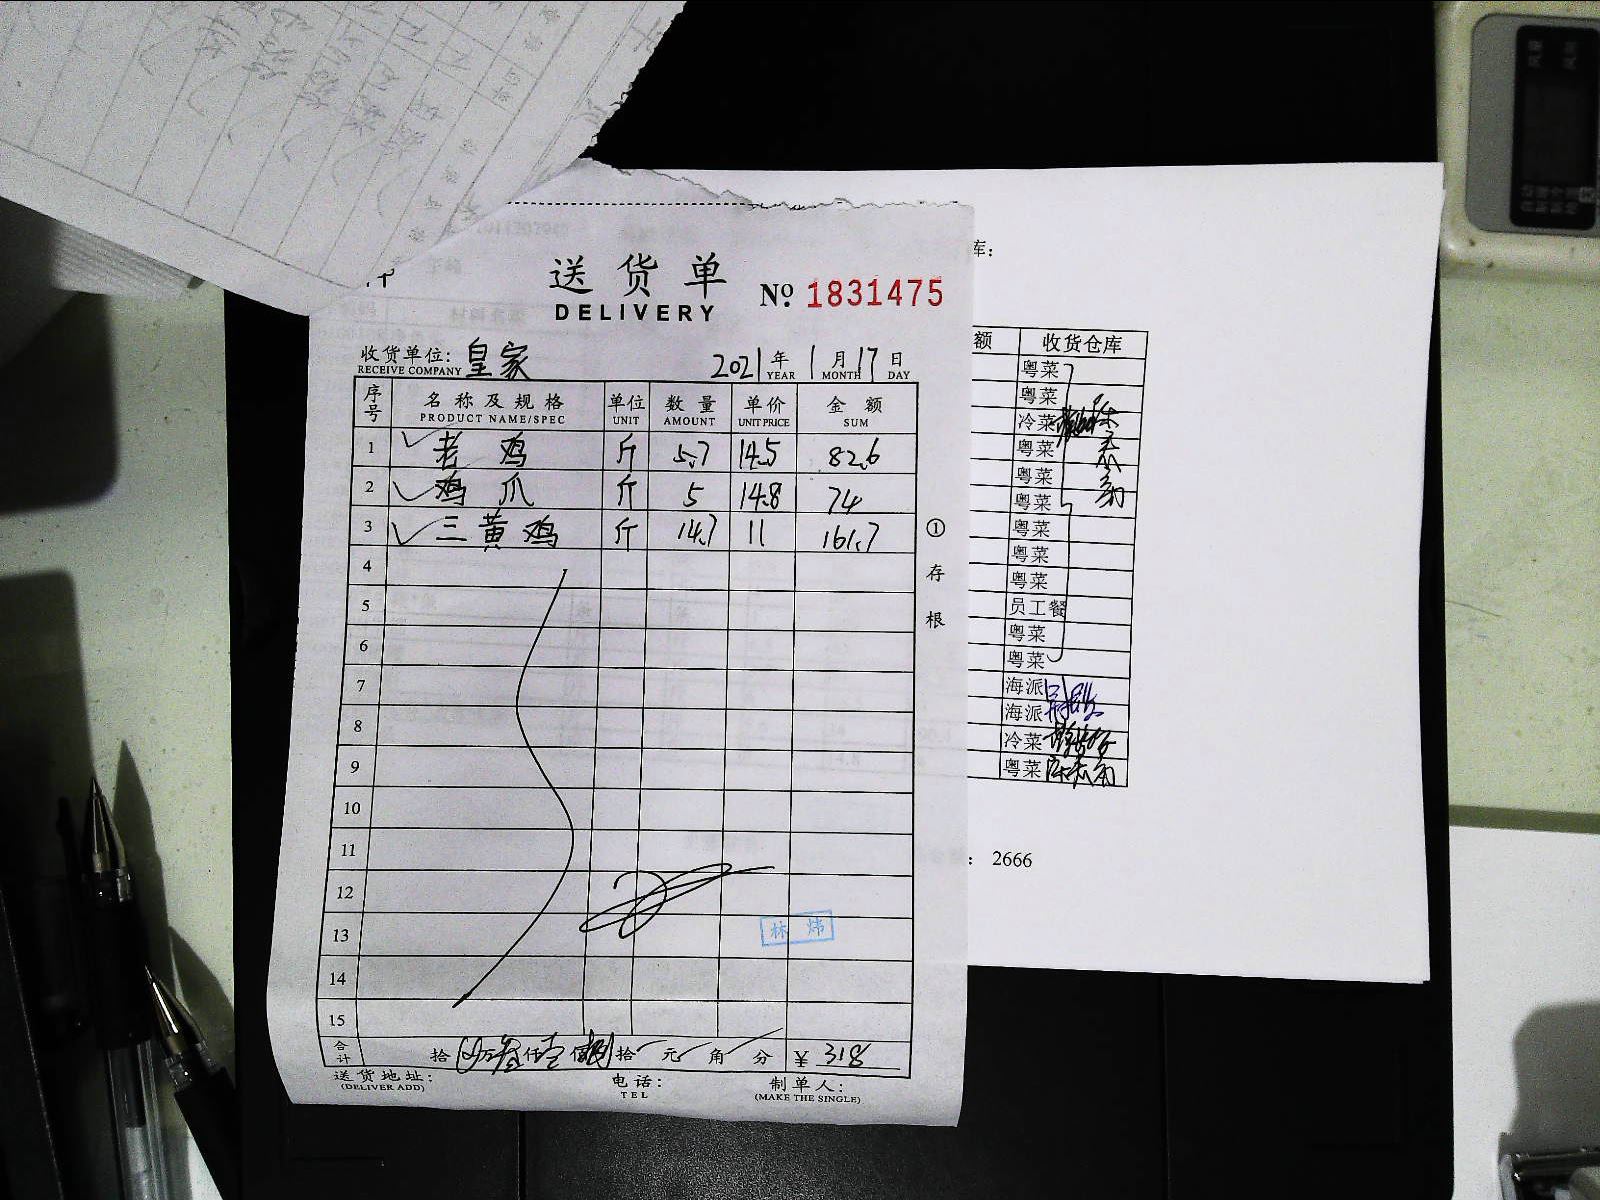 送货单
DELIVERY
№ 1831475
收货单位: 皇家 2021年1月17日
RECEIVE COMPANY YEAR MONTH DAY
序号 名称及规格 单位 数量 单价 金额
PRODUCT NAME/SPEC UNIT AMOUNT UNIT PRICE SUM
1 老鸡 斤 5.7 14.5 82.6
2 鸡爪 斤 5 14.8 74
3 三黄鸡 斤 14.7 11 161.7
4
5
6
7
8
9
10
11
12
13
14
15
林炜
合计 拾 万 仟 佰 拾 元 角 分 ¥ 318
送货地址: 电话: 制单人:
(DELIVER ADD) TEL (MAKE THE SINGLE)
①存根
库:
额 收货仓库
粤菜
粤菜
冷菜
粤菜
粤菜
粤菜
粤菜
粤菜
粤菜
员工餐
粤菜
粤菜
海派
海派
冷菜
粤菜
: 2666